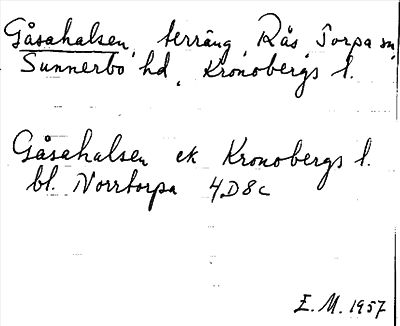 Gåsahalsen, terräng, Rås, Torpa sn,
Sunnerbo hd, Kronobergs l.
Gåsahalsen ek Kronobergs l.
bl. Norrtorpa 4D8c
E. M. 1957